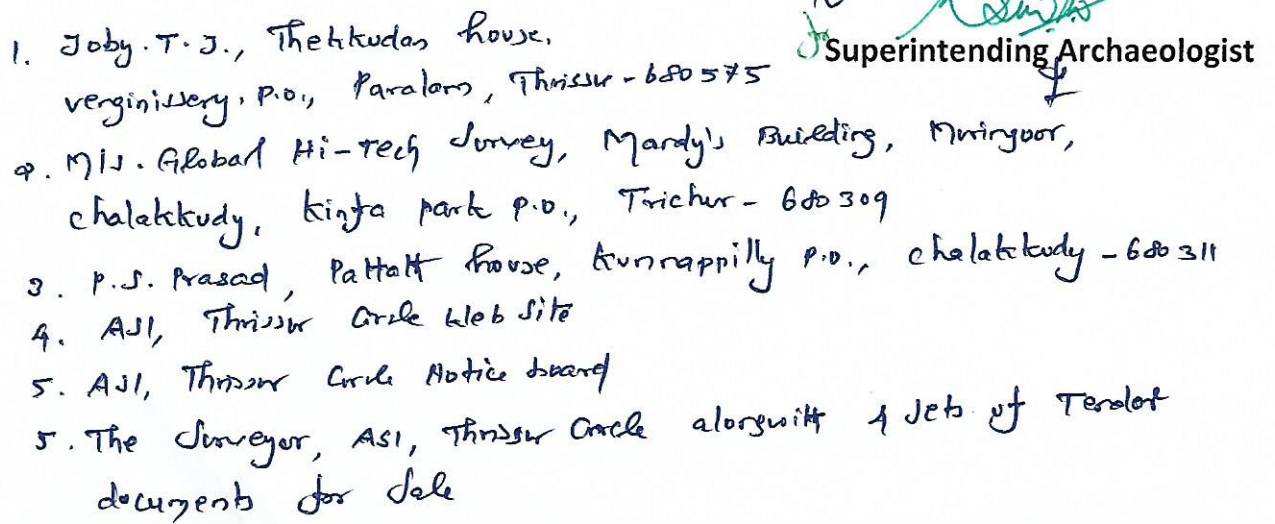 for Superintending Archaeologist
1. Joby. T. J., Thekkudan house,
verginissery, P.O., Paralam, Thrissur - 680575
2. M/s. Global Hi-Tech Survey, Mardy's Building, Muringoor,
chalakkudy, kinfa park P.O., Trichur - 680309
3. P.S. Prasad, Pattatt house, kunnappilly P.O., chalakkudy - 680311
4. ASI, Thrissur Circle Web Site
5. ASI, Thrissur Circle Notice board
5. The Surveyor, ASI, Thrissur Circle alongwith 4 sets of Tender
documents for Sale